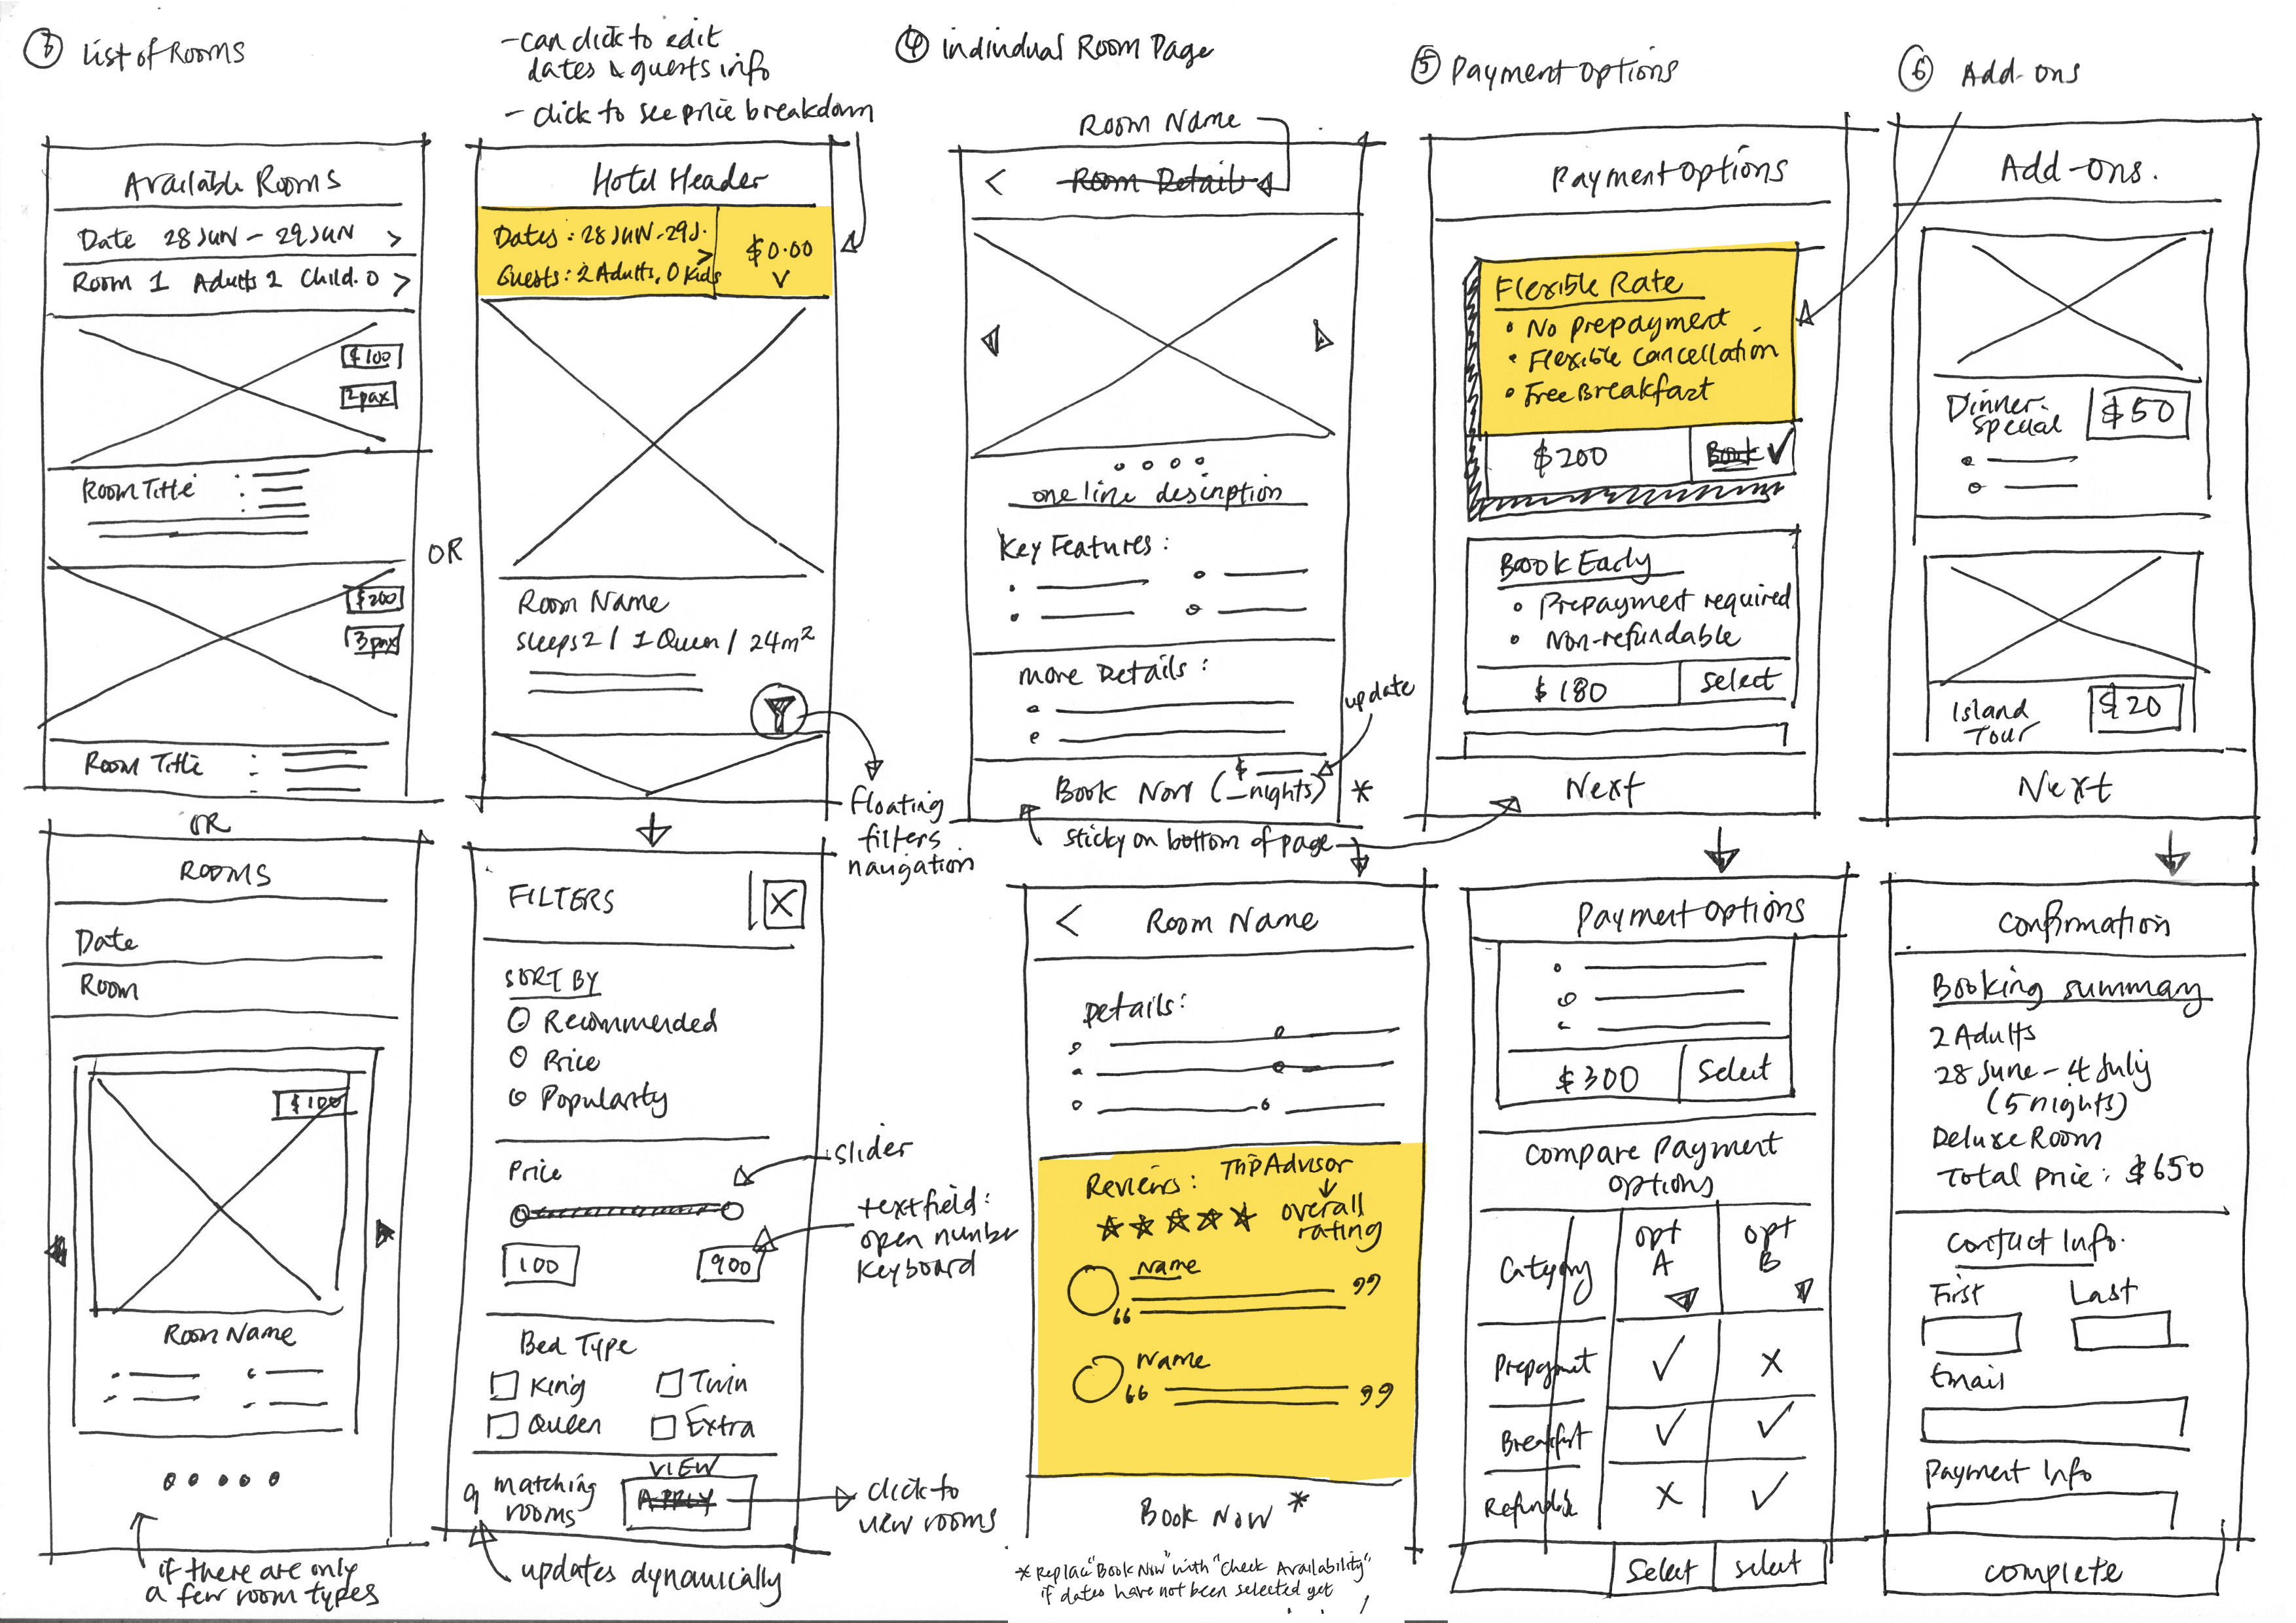 ③ List of Rooms
Available Rooms
Date 28 JUN - 29 JUN >
Room 1 Adults 2 Child. 0 >
$100
2pax
Room Title
$200
3pax
Room Title
OR
OR
ROOMS
Date
Room
$100
Room Name
if there are only
a few room types
- can click to edit
dates & guests info
- click to see price breakdown
Hotel Header
Dates: 28 JUN-29J.
>
Guests: 2 Adults, 0 Kids
$0.00
Room Name
Sleeps 2 / 1 Queen / 24m²
Floating
filters
navigation
FILTERS X
SORT BY
Recommended
Price
Popularity
Price
slider
textfield:
open number
keyboard
100 900
Bed Type
King Twin
Queen Extra
9 matching
rooms
VIEW
APPLY
click to
view rooms
updates dynamically
④ individual Room Page
Room Name
< Room Details
one line description
Key Features:
more Details:
update
Book Now ($ __
_nights) *
sticky on bottom of page
< Room Name
Details:
Reviews: TripAdvisor
overall
rating
Name
“ ”
Name
“ ”
Book Now *
* Replace "Book Now" with "Check Availability"
if dates have not been selected yet
⑤ Payment Options
Payment Options
Flexible Rate
• No prepayment
• Flexible Cancellation
• Free Breakfast
$200 Book ✓
Book Early
• Prepayment required
• Non-refundable
$180 Select
Next
Payment Options
$300 Select
Compare Payment
Options
Category opt A opt B
Prepayment ✓ X
Breakfast ✓ ✓
Refundable X ✓
Select Select
⑥ Add-ons
Add-ons.
Dinner
Special
$50
Island
Tour
$20
Next
Confirmation
Booking summary
2 Adults
28 June - 4 July
(5 nights)
Deluxe Room
Total Price: $650
Contact Info.
First Last
Email
Payment Info
Complete